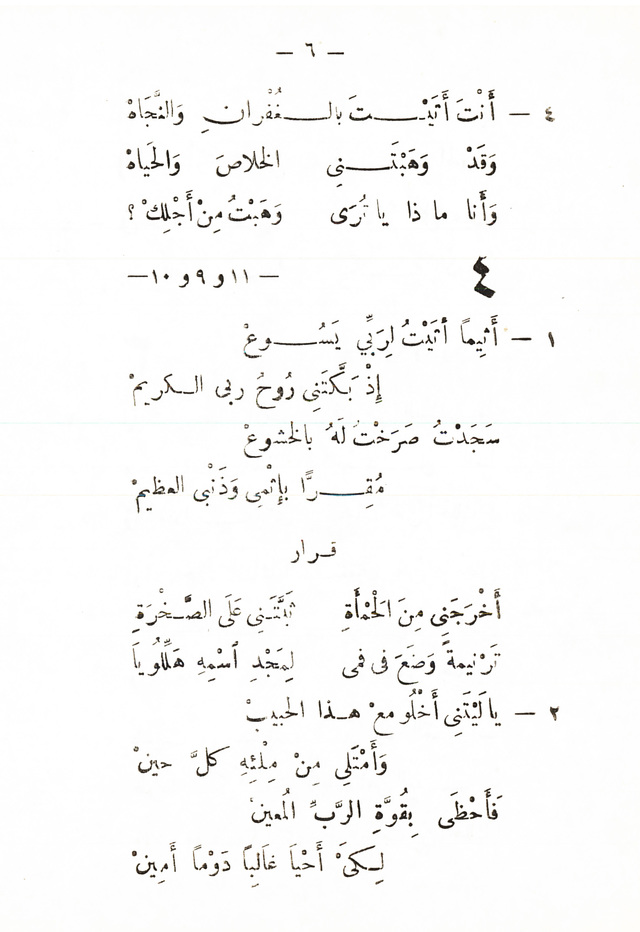 — ٦ —
٤ — أَنْتَ أَتَيْـــتَ بالـــغُفْرانِ وَالنَّجَاهْ
وَقَدْ وَهَبْتَـــنِي الخلاصَ وَالحَيَاهْ
وَأَنا ما ذا يا تُرَى وَهَبْتُ مِنْ أَجْلِكْ ؟
٤ — ١١ و ٩ و ١٠—
١ — أَثِيمًا أَتَيْتُ لِرَبِّي يَسُـــوعْ
إِذْ بَكَّتَنِي رُوحُ ربي الـكريمْ
سَجَدْتُ صَرَخْتُ لَهُ بالخشوعْ
مُقِـــرًّا بإِثْمِي وَذَنْبي العظيمْ
قـرار
أَخْرَجَنِي مِنَ الحَمْأَةِ ثَبَّتَـنِي عَلَى الصَّـخْرَةِ
تَرْنيمةً وَضَعَ في فمي لِمَجْدِ ٱسْمِهِ هَلِّلُويَا
٢ — يا لَيْتَنِي أَخْلُو معْ هـذا الحبيبْ
وَأَمْتَلِي مِنْ مِلْئِهِ كلَّ حينْ
فَأَحْظَى بِقُوَّةِ الرَّبِّ المُعينْ
لِـكيْ أَحْيَا غَالِبًا دَوْمًا أَمِينْ